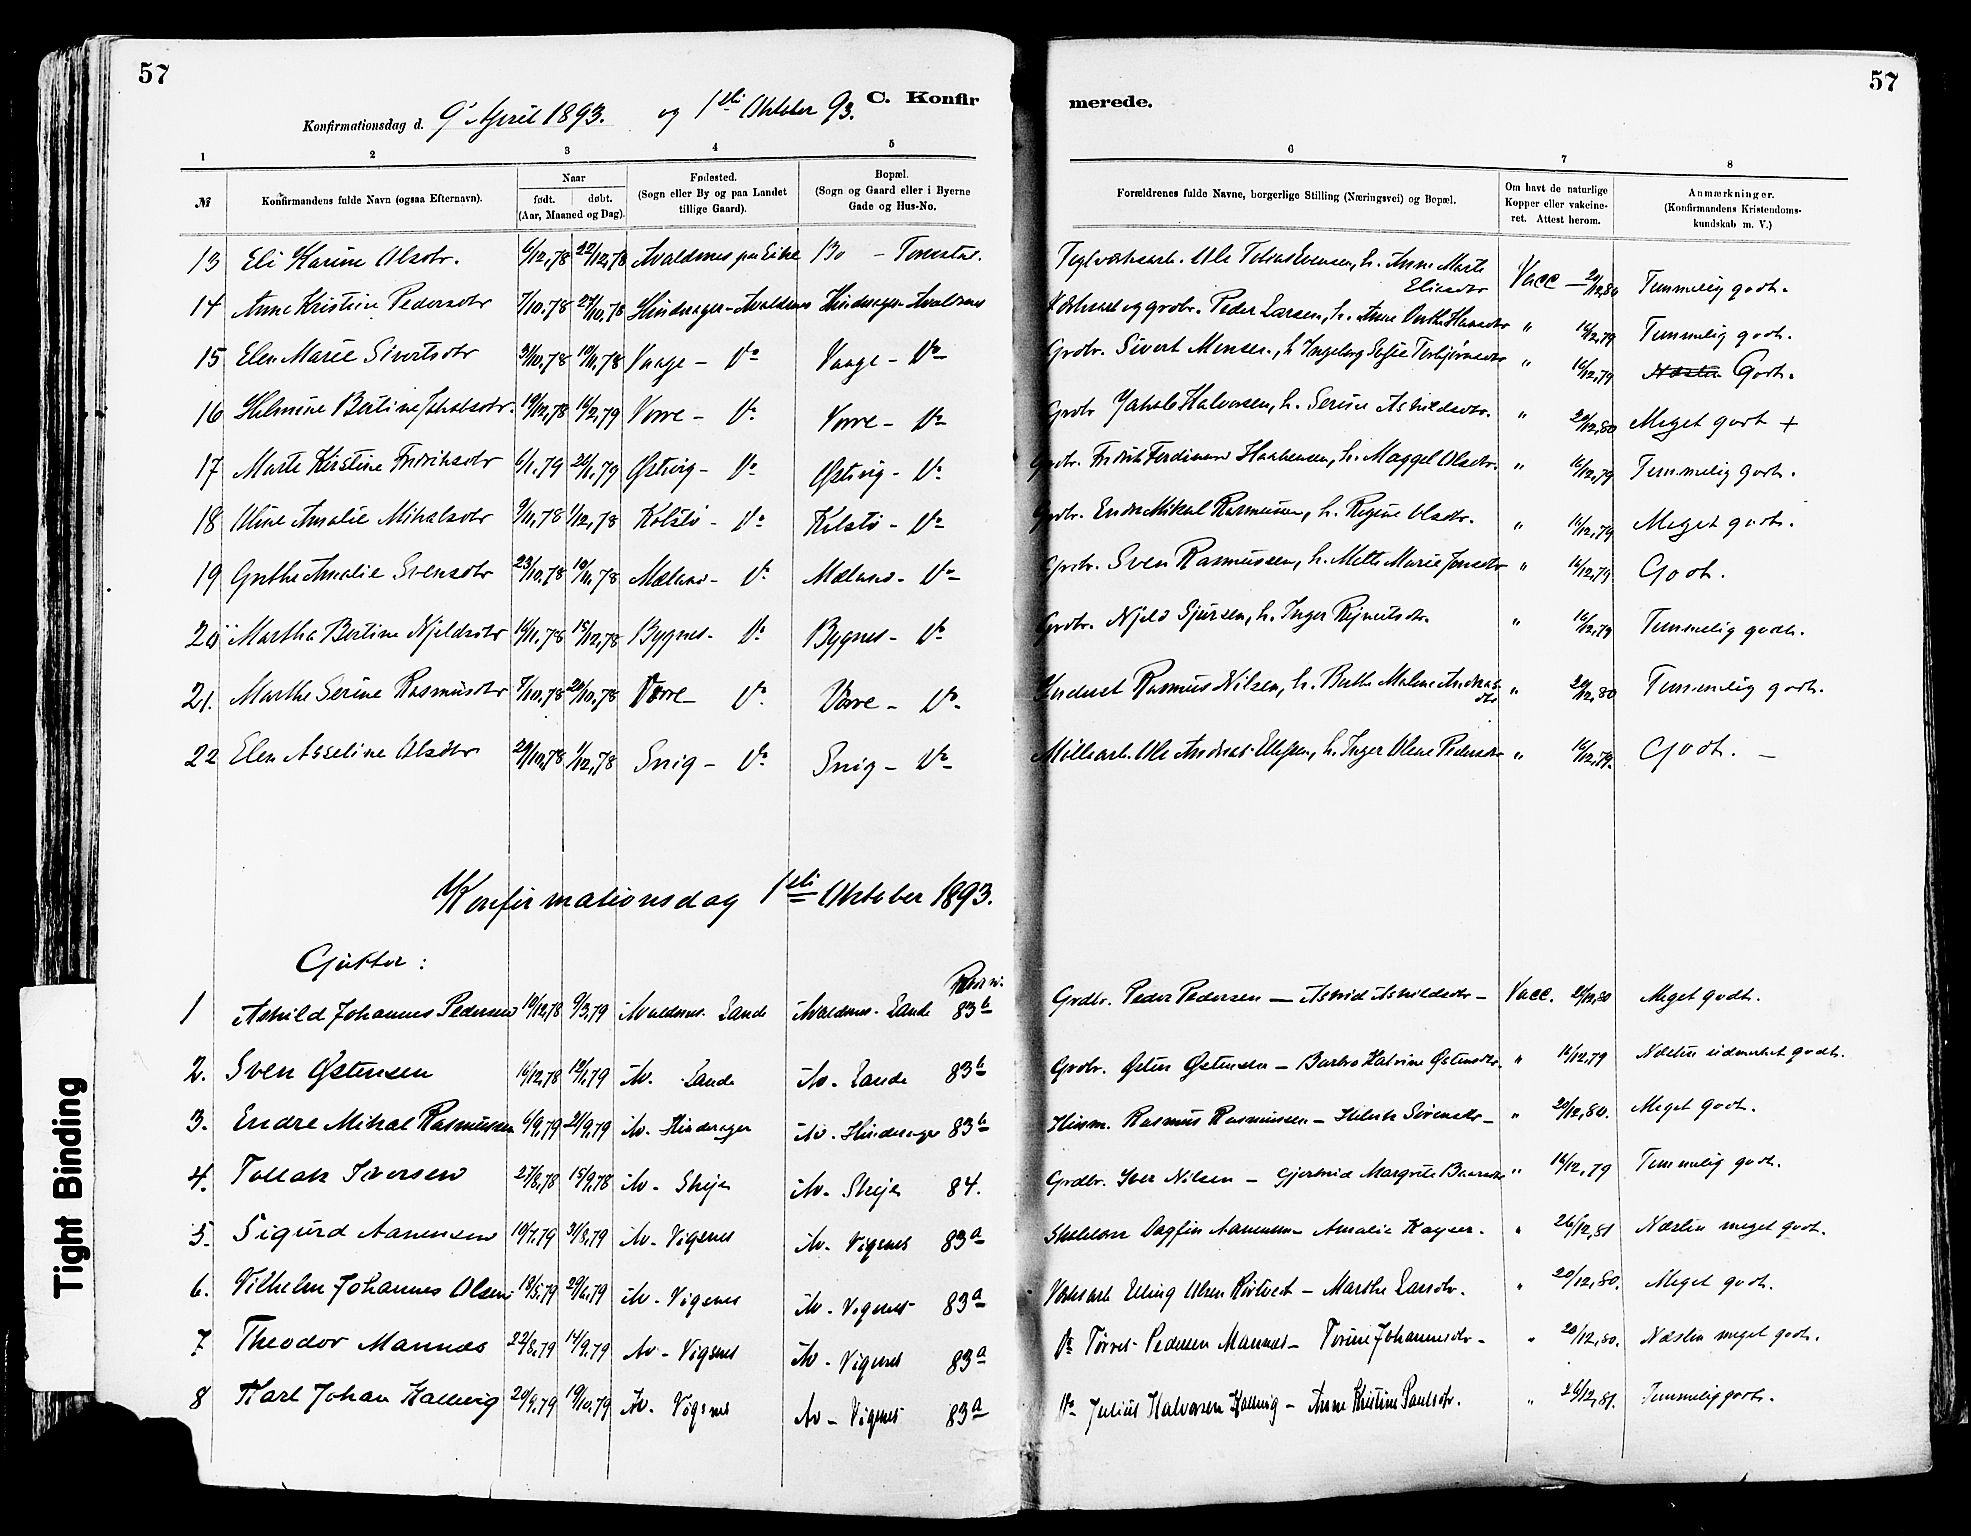 57
57
C. Konfir
merede.
Konfirmationsdag d. 9 April 1893. og 1ste Oktober 93.
1 2 3 4 5 6 7 8
№
Konfirmandens fulde Navn (ogsaa Efternavn).
Naar
født. døbt.
(Aar, Maaned og Dag).
Fødested.
(Sogn eller By og paa Landet
tillige Gaard).
Bopæl.
(Sogn og Gaard eller i Byerne
Gade og Hus-No.
Forældrenes fulde Navne, borgerlige Stilling (Næringsvei) og Bopæl.
Om havt de naturlige
Kopper eller vakcine-
ret. Attest herom.
Anmærkninger.
(Konfirmandens Kristendoms-
kundskab m. V.)
13 Eli Karine Olsdtr. 6/12,78 22/12,78 Avaldsnes Bø Ole Tobias Evensen, h. Anne Marte Vacc — 20/12,80 Temmelig godt.
Eliasdtr
14 Anne Kristine Pedersdtr 7/10.78 27/10,78 Hinderager - Avaldsnes Hinderager - Avaldsnes Peder Larsen, h. Anne Dorthe Hansdtr " 16/12,79 Temmelig godt.
15 Elen Marie Sivertsdtr 3/10,78 10/11,78 Vaage - Do Vaage - Do Grdbr. Sivert Monsen, h. Ingeborg Sofie Torbjørnsdtr " 16/12,79 Næsten Godt.
16 Helmine Bertine Jakobsdtr. 19/12,78 16/2,79 Vorre - Do Vorre - Do Grdbr Jakob Halvorsen, h. Serine Askildsdtr. " 20/12,80 Meget godt +
17 Marte Kirstine Fredriksdtr 6/1,79 26/1,79 Østvig - Do Østvig - Do Grdbr. Fredrik Ferdinand Haakensen, h. Maggel Olsdtr. " 16/12,79 Temmelig godt.
18 Oline Amalie Mikalsdtr 9/11,78 1/12,78 Kolstø - Do Kolstø - Do Grdbr. Endre Mikal Rasmussen, h. Regine Olsdtr. " 16/12,79 Meget godt.
19 Grethe Amalie Svensdtr 23/10,78 10/11,78 Mæland - Do Mæland - Do Grdbr. Sven Rasmussen, h. Mette Marie Jonsdtr " 16/12,79 Godt.
20 Martha Bertine Njeldsdtr 16/11,78 15/12,78 Bygnes - Do Bygnes - Do Grdbr. Njeld Sjursen, h. Inger " 16/12,79 Temmelig godt.
21. Marthe Serine Rasmusdtr 7/10,78 20/10,78 Vorre Do Vorre - Do Rasmus Nilsen, h. Berthe Malene Andreas- " 20/12,80 Temmelig godt.
dtr
22 Elen Asseline Olsdtr 29/10,78 1/12,78 Snig - Do Snig - Do Møllearb. Ole Andreas Ellefsen, h. Inger Olene Pedersdtr " 16/12,79. Godt. —
Konfirmationsdag 1ste Oktober 1893.
Gutter:
1 Askild Johannes Pedersen 19/12,78 9/3,79 Avaldsnes. Sande Avaldsnes. Sande 83b Grdbr. Peder Pedersen — Astrid Askildsdtr - Vacc. 20/12,80 Meget godt.
2. Sven Østensen 16/12,78 12/1,79 Av. Sande Av. Sande 83b Grdbr. Østen Østensen — Barbro Katrine Østensdtr. " 16/12,79 Næsten udmærket godt.
3. Endre Mikal Rasmussen 6/9,79 21/9,79 Av. Hinderager Av. Hinderager 83b Husm. Rasmus Rasmussen — " 20/12,80. Meget godt.
4. Tollak Iversen 27/8,78 15/9,78 Av - Skeje Av - Skeje 84. Grdbr. Iver Nilsen - Gjertrud Margrete " 16/12,79 Temmelig godt.
5. Sigurd Aanensen 10/7,79 31/8,79 Av - Vigsnes Av - Vigsnes 83a Dagfin Aanensen - Amalie Kayser. " 26/12,81 Næsten meget godt.
6. Vilhelm Johannes Olsen 18/5,79 29/6,79 Av - Vigsnes Av - Vigsnes 83a Elling Olsen - Marthe Larsdtr. " 20/12,80. Meget godt.
7. Theodor Mannæs 22/8,79 14/9,79 Av - Vigsnes Av - Vigsnes 83a Do Tørres Pedersen Mannæs - Torine Johannesdtr - " 20/12,80. Næsten meget godt.
8 Karl Johan Kallevig 20/9,79 19/10,79 Av. Vigsnes Av - Vigsnes 83a Do Julius Halvorsen Kallevig - Anne Kristine Paulsdtr. " 26/12,81. Temmelig godt.
Tight Binding